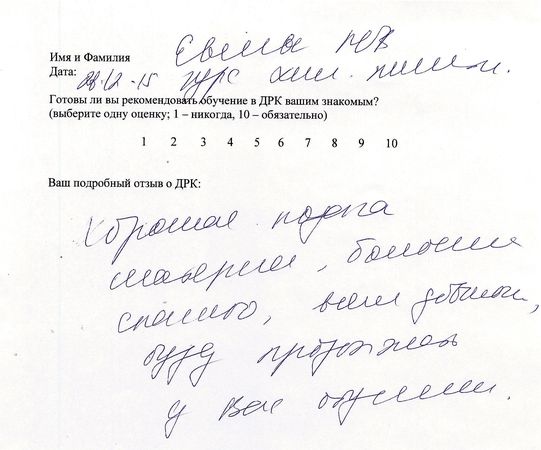 Имя и Фамилия
Дата: 28.12.-15 курс
Готовы ли вы рекомендовать обучение в ДРК вашим знакомым?
(выберите одну оценку; 1 – никогда, 10 – обязательно)
1 2 3 4 5 6 7 8 9 10
Ваш подробный отзыв о ДРК:
Хорошая подача
материала, большое
спасибо, всем доволен,
буду продолжать
у Вас обучение.